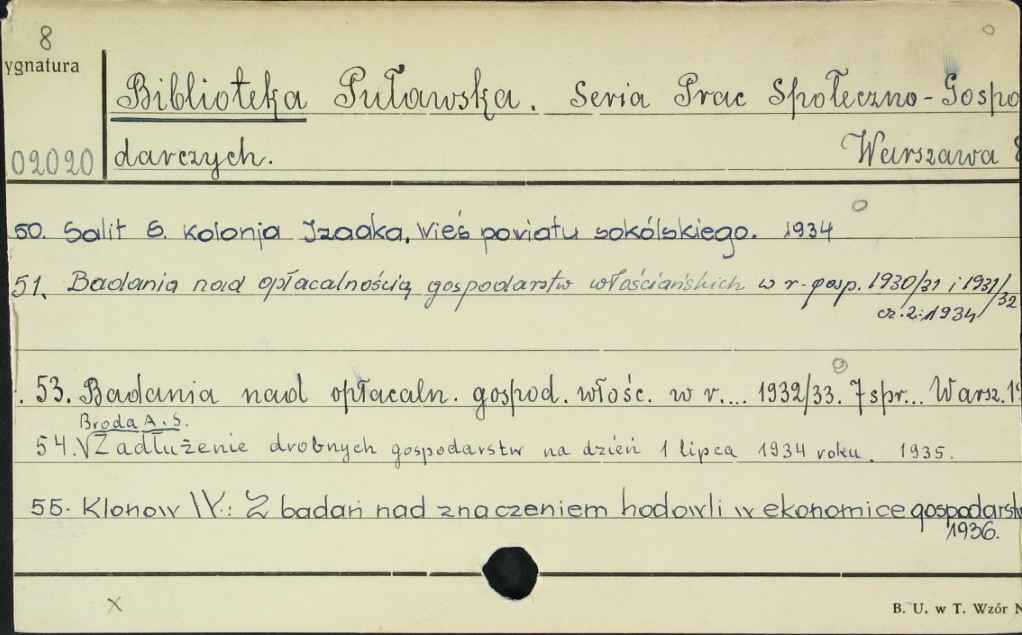 8
ygnatura
Biblioteka Puławska. Seria Prac Społeczno-Gospo
02020 darczych. Warszawa 8
50. Salit S. Kolonja Izaaka, Wieś powiatu sokólskiego. 1934
51. Badania nad opłacalnością gospodarstw włościańskich w r. gosp. 1930/31 i 1931/32
cz. 2: 1934
53. Badania nad opłacaln. gospod. włośc. w r.... 1932/33. 7 spr... Warsz. 19
Broda A. S.
54. √Zadłużenie drobnych gospodarstw na dzień 1 lipca 1934 roku. 1935.
55. Klonow W.: Z badań nad znaczeniem hodowli w ekonomice gospodarstw
1936.
x
B. U. w T. Wzór N